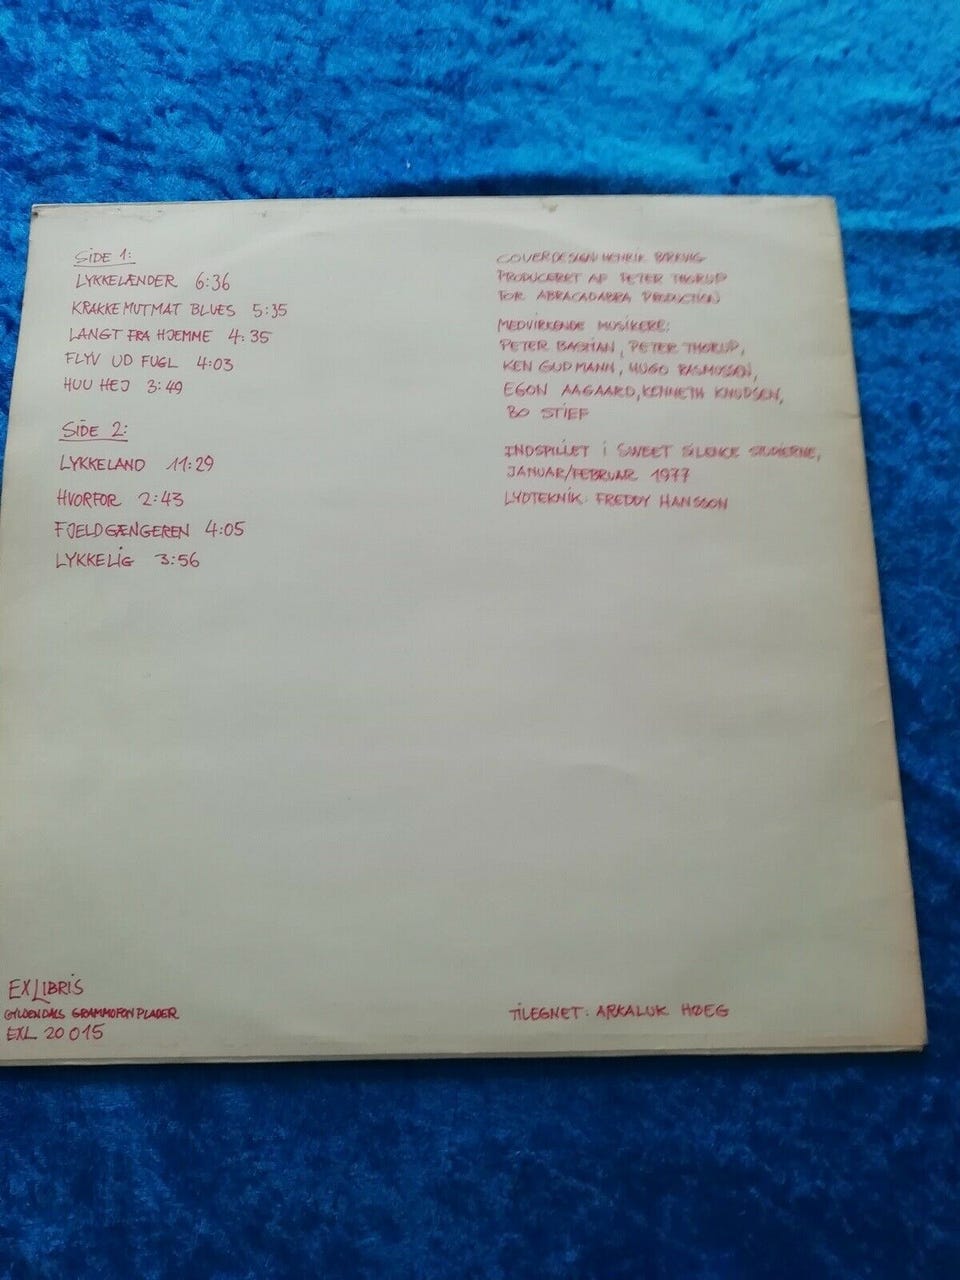 SIDE 1:
LYKKELÆNDER 6:36
KRAKKEMUTMAT BLUES 5:35
LANGT FRA HJEMME 4:35
FLYV UD FUGL 4:03
HUU HEJ 3:49
SIDE 2:
LYKKELAND 11:29
HVORFOR 2:43
FJELDGÆNGEREN 4:05
LYKKELIG 3:56
COVERDESIGN HENRIK
PRODUCERET AF PETER THORUP
FOR ABRACADABRA PRODUCTION
MEDVIRKENDE MUSIKERE:
PETER BASTIAN, PETER THORUP,
KEN GUDMANN, HUGO RASMUSSEN,
EGON AAGAARD, KENNETH KNUDSEN,
BO STIEF
INDSPILLET I SWEET SILENCE STUDIERNE,
JANUAR/FEBRUAR 1977
LYDTEKNIK: FREDDY HANSSON
EXLIBRIS
GYLDENDALS GRAMMOFONPLADER
EXL 20 015
TILEGNET: ARKALUK HØEG